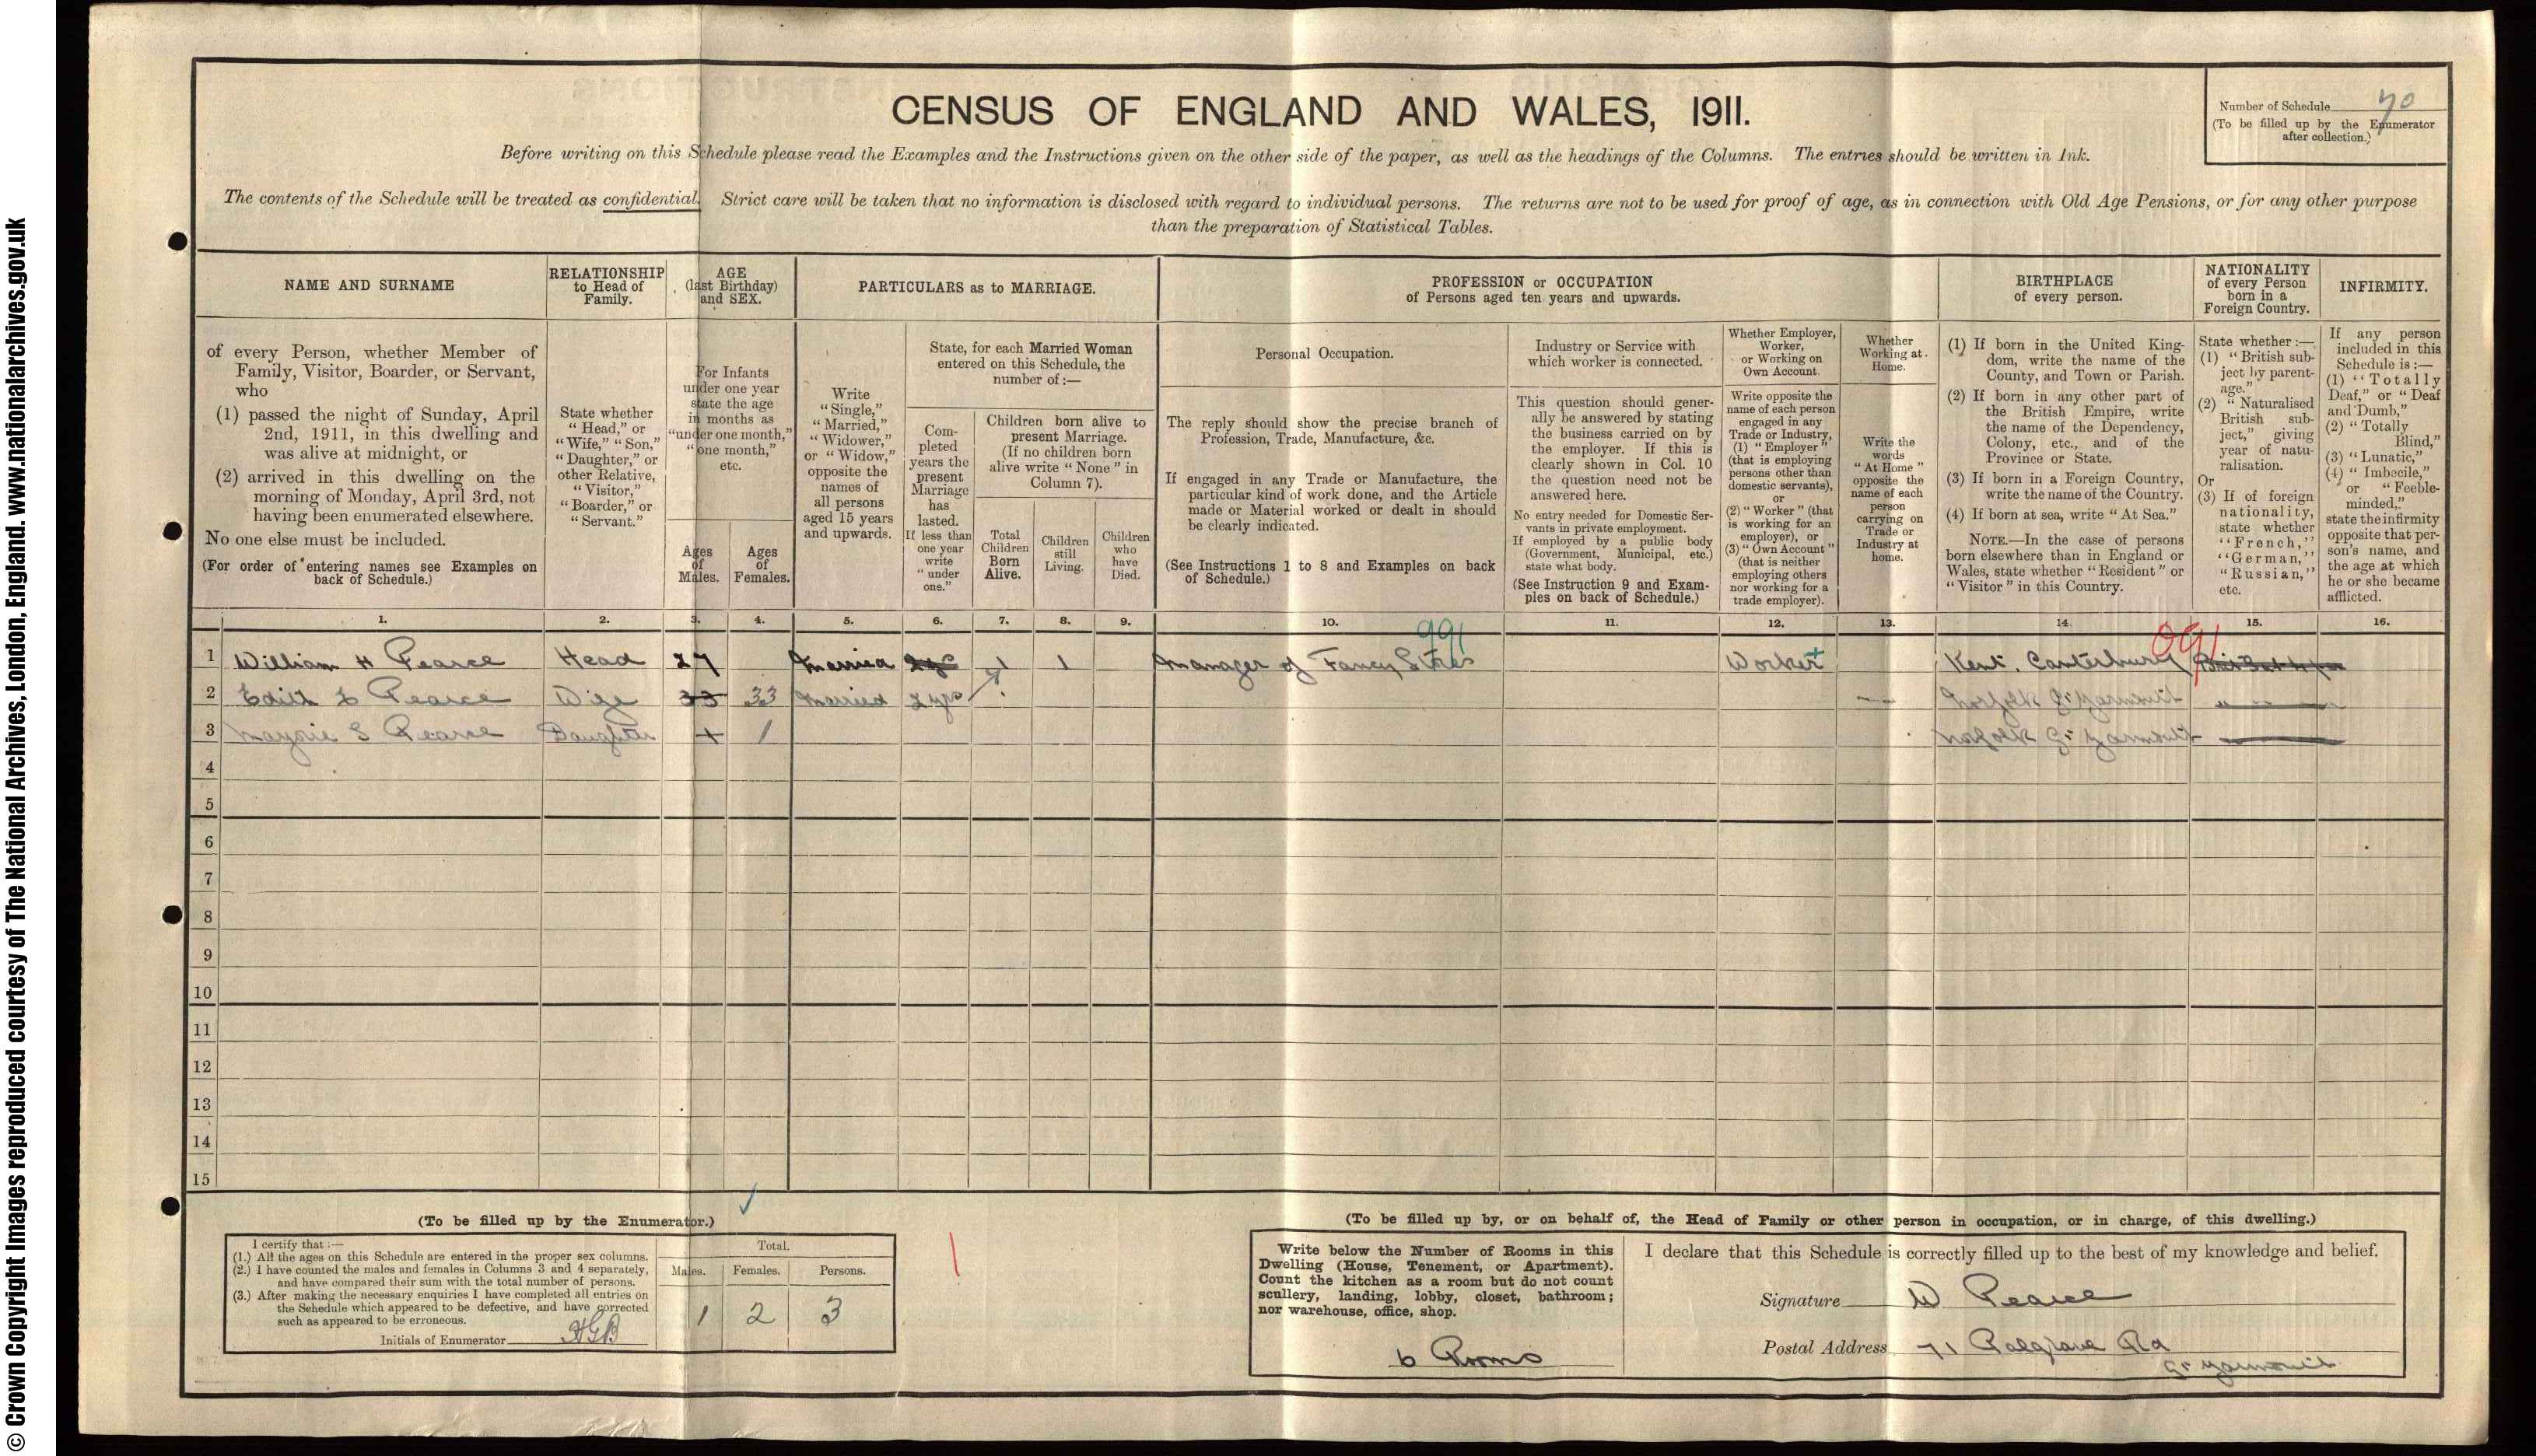 © Crown Copyright Images reproduced courtesy of The National Archives, London, England. www.nationalarchives.gov.uk
CENSUS OF ENGLAND AND WALES, 1911.
Number of Schedule 70
(To be filled up by the Enumerator
after collection.)
Before writing on this Schedule please read the Examples and the Instructions given on the other side of the paper, as well as the headings of the Columns. The entries should be written in Ink.
The contents of the Schedule will be treated as confidential. Strict care will be taken that no information is disclosed with regard to individual persons. The returns are not to be used for proof of age, as in connection with Old Age Pensions, or for any other purpose
than the preparation of Statistical Tables.
NAME AND SURNAME
of every Person, whether Member of
Family, Visitor, Boarder, or Servant,
who
(1) passed the night of Sunday, April
2nd, 1911, in this dwelling and
was alive at midnight, or
(2) arrived in this dwelling on the
morning of Monday, April 3rd, not
having been enumerated elsewhere.
No one else must be included.
(For order of entering names see Examples on
back of Schedule.)
RELATIONSHIP
to Head of
Family.
State whether
"Head," or
"Wife," "Son,"
"Daughter," or
other Relative,
"Visitor,"
"Boarder," or
"Servant."
AGE
(last Birthday)
and SEX.
For Infants
under one year
state the age
in months as
"under one month,"
"one month,"
etc.
Ages
of
Males.
Ages
of
Females.
PARTICULARS as to MARRIAGE.
Write
"Single,"
"Married,"
"Widower,"
or "Widow,"
opposite the
names of
all persons
aged 15 years
and upwards.
State, for each Married Woman
entered on this Schedule, the
number of:—
Com-
pleted
years the
present
Marriage
has
lasted.
If less than
one year
write
"under
one."
Children born alive to
present Marriage.
(If no children born
alive write "None" in
Column 7).
Total
Children
Born
Alive.
Children
still
Living.
Children
who
have
Died.
PROFESSION or OCCUPATION
of Persons aged ten years and upwards.
Personal Occupation.
The reply should show the precise branch of
Profession, Trade, Manufacture, &c.
If engaged in any Trade or Manufacture, the
particular kind of work done, and the Article
made or Material worked or dealt in should
be clearly indicated.
(See Instructions 1 to 8 and Examples on back
of Schedule.)
Industry or Service with
which worker is connected.
This question should gener-
ally be answered by stating
the business carried on by
the employer. If this is
clearly shown in Col. 10
the question need not be
answered here.
No entry needed for Domestic Ser-
vants in private employment.
If employed by a public body
(Government, Municipal, etc.)
state what body.
(See Instruction 9 and Exam-
ples on back of Schedule.)
Whether Employer,
Worker,
or Working on
Own Account.
Write opposite the
name of each person
engaged in any
Trade or Industry,
(1) "Employer"
(that is employing
persons other than
domestic servants),
or
(2) "Worker" (that
is working for an
employer), or
(3) "Own Account"
(that is neither
employing others
nor working for a
trade employer).
Whether
Working at
Home.
Write the
words
"At Home"
opposite the
name of each
person
carrying on
Trade or
Industry at
home.
BIRTHPLACE
of every person.
(1) If born in the United King-
dom, write the name of the
County, and Town or Parish.
(2) If born in any other part of
the British Empire, write
the name of the Dependency,
Colony, etc., and of the
Province or State.
(3) If born in a Foreign Country,
write the name of the Country.
(4) If born at sea, write "At Sea."
NOTE.—In the case of persons
born elsewhere than in England or
Wales, state whether "Resident" or
"Visitor" in this Country.
NATIONALITY
of every Person
born in a
Foreign Country.
State whether:—
(1) "British sub-
ject by parent-
age."
(2) "Naturalised
British sub-
ject," giving
year of natu-
ralisation.
Or
(3) If of foreign
nationality,
state whether
"French,"
"German,"
"Russian,"
etc.
INFIRMITY.
If any person
included in this
Schedule is:—
(1) "Totally
Deaf," or "Deaf
and Dumb,"
(2) "Totally
Blind,"
(3) "Lunatic,"
(4) "Imbecile,"
or "Feeble-
minded,"
state the infirmity
opposite that per-
son's name, and
the age at which
he or she became
afflicted.
1. 2. 3. 4. 5. 6. 7. 8. 9. 10. 11. 12. 13. 14. 15. 16.
991
091
1 William H Pearce Head 27 Married 2 yrs 1 1 Manager of Fancy Worker Kent. Canterbury
2 Edith E Pearce Wife 33 33 Married 2 yrs Norfolk Gt Yarmouth
3 Marjorie E Pearce Daughter 1 Norfolk Gt Yarmouth
4
5
6
7
8
9
10
11
12
13
14
15
(To be filled up by the Enumerator.)
I certify that:—
(1.) All the ages on this Schedule are entered in the proper sex columns.
(2.) I have counted the males and females in Columns 3 and 4 separately,
and have compared their sum with the total number of persons.
(3.) After making the necessary enquiries I have completed all entries on
the Schedule which appeared to be defective, and have corrected
such as appeared to be erroneous.
Initials of Enumerator HGB
Total.
Males. Females. Persons.
1 2 3
(To be filled up by, or on behalf of, the Head of Family or other person in occupation, or in charge, of this dwelling.)
Write below the Number of Rooms in this
Dwelling (House, Tenement, or Apartment).
Count the kitchen as a room but do not count
scullery, landing, lobby, closet, bathroom;
nor warehouse, office, shop.
6 Rooms
I declare that this Schedule is correctly filled up to the best of my knowledge and belief.
Signature W Pearce
Postal Address 71 Palgrave Rd
Gt Yarmouth